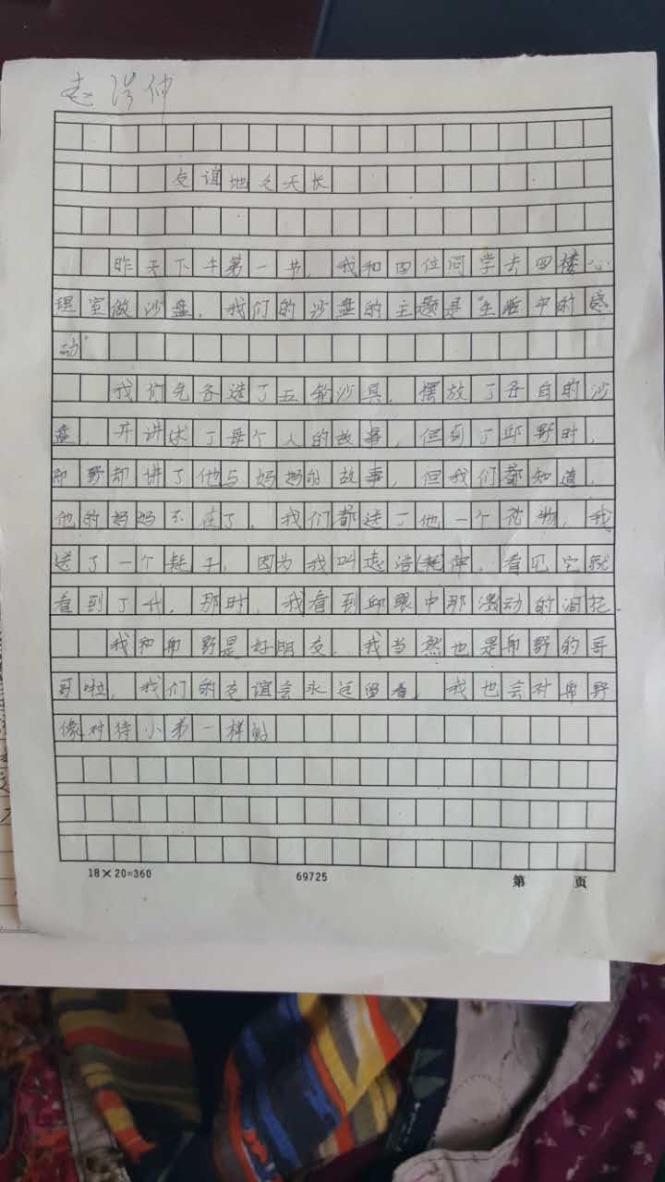 友谊地久天长
昨天下午第一节,我和四位同学去四楼心
理室做沙盘.我们的沙盘的主题是"生活中的感
动"
我们先各选了五个沙具.摆放了各自的沙
盘.并讲述了每个人的故事,但到了邱野时,
邱野却讲了他与妈妈的故事,但我们都知道,
他的妈妈不在了.我们都送了他一个礼物,我
送了一个耗子,因为我叫浩.看见它就
看到了我.那时,我看到邱眼中那激动的泪花.
我和邱野是好朋友.我当然也是邱野的哥
哥啦.我们的友谊会永远留着.我也会对邱野
像对待小弟一样的
18×20=360
69725
第 页